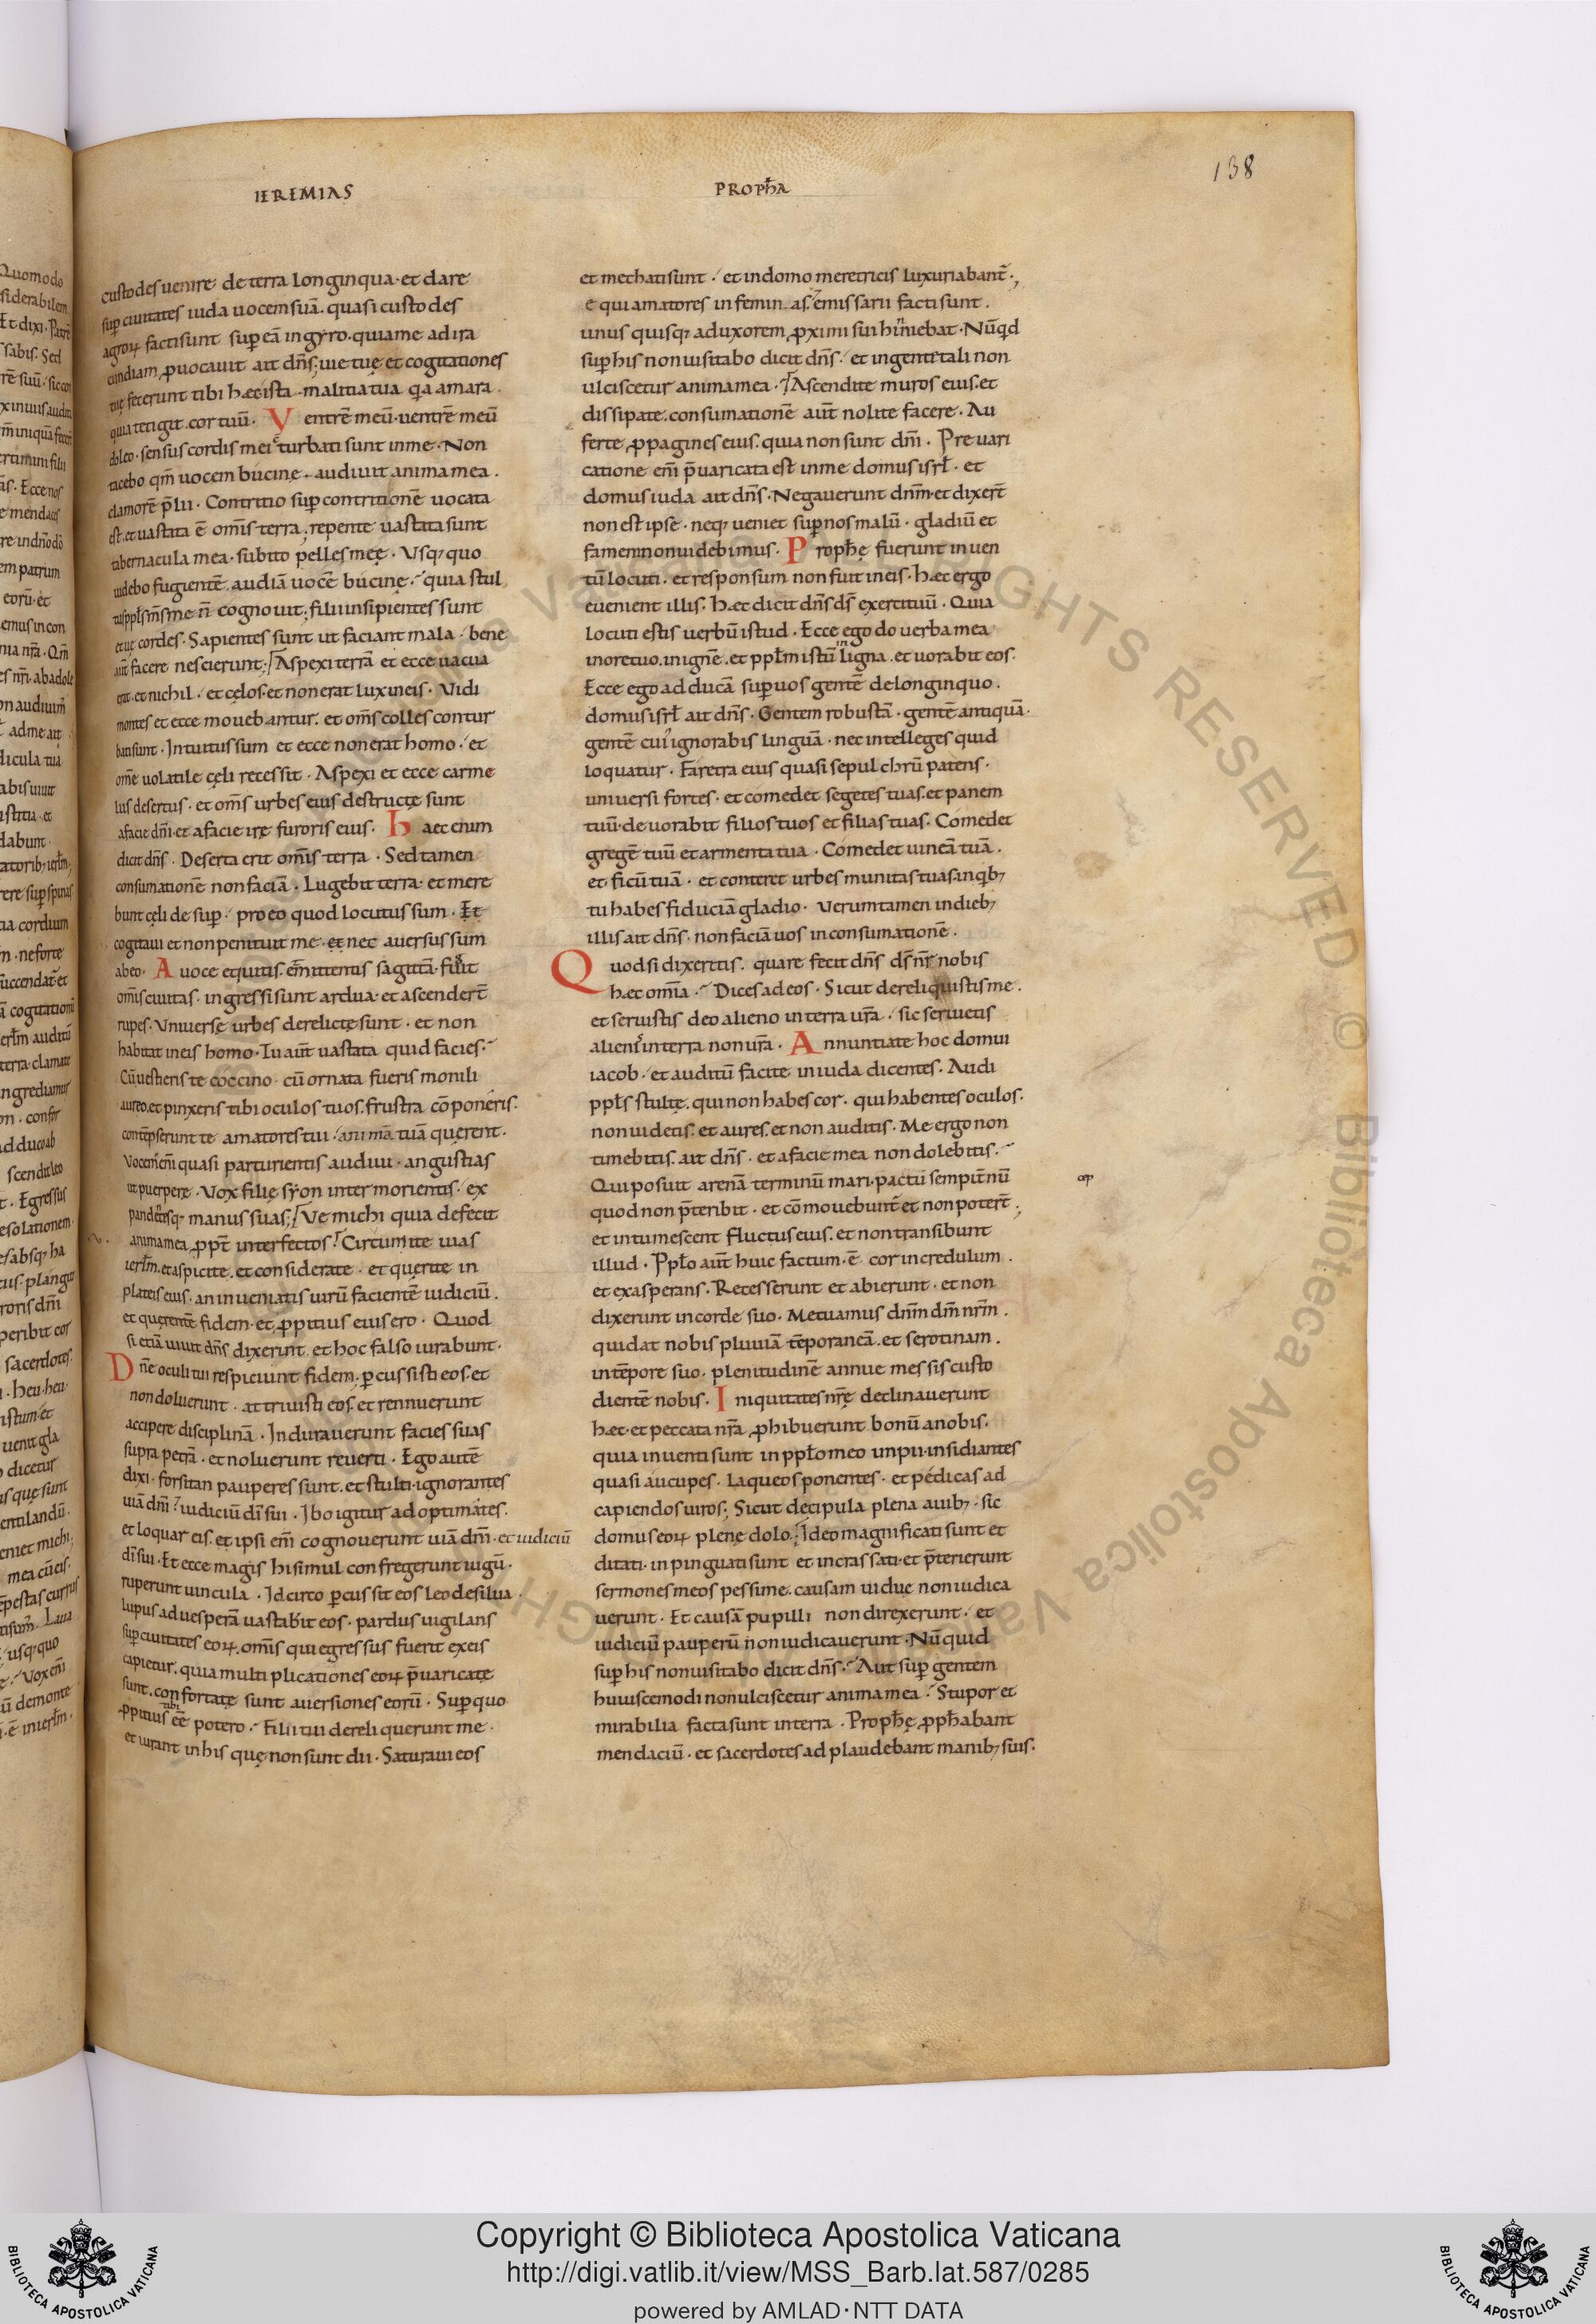 138
IEREMIAS
PROPH̄A
custodes uenire de terra longinqua · et dare
sup̄ ciuitates iuda uocem suā · quasi custodes
agroꝝ facti sunt sup̄ eā in gyro · quia me ad ira
cundiam ꝓuocauit ait dn̄s; uię tuę et cogitationes
tuę fecerunt tibi hæc ista · malitia tua q̄a amara
quia tetigit cor tuū · Ventrē meū · uentrē meū
doleo · sensus cordis mei turbati sunt in me · Non
tacebo qm̄ uocem bucinę · audiuit anima mea .
clamorē p̄lii · Contritio sup̄ contritionē uocata
est et uastata ē om̄is terra ; repente uastata sunt
tabernacula mea · subito pelles meę · Vsq; quo
uidebo fugientē audiā uocē bucinę · quia stul
tus ppl̄s m̄s me n̄ cognouit ; filii insipientes sunt
et uęcordes · Sapientes sunt ut faciant mala · bene
aūt facere nescierunt ; Aspexi terrā et ecce uacua
erat · et nichil · et cęlos · et non erat lux in eis · Vidi
montes et ecce mouebantur · et om̄s colles contur
bati sunt · Intuitus sum et ecce non erat homo · et
om̄e uolatile cęli recessit · Aspexi et ecce carme
lus desertus · et om̄s urbes eius destructę sunt
a facie dn̄i · et a facie irę furoris eius · Haec enim
dicit dn̄s · Deserta erit om̄is terra · Sed tamen
consumationē non faciā · Lugebit terra · et mere
bunt cęli de sup̄ · pro eo quod locutus sum · Et
cogitaui et non penituit me · et nec auersus sum
ab eo · A uoce equitis · et mittentis sagittā · fugit
om̄is ciuitas · ingressi sunt ardua · et ascendert̄
rupes · Vniuersę urbes derelictę sunt · et non
habitat in eis homo · Tu aūt uastata quid facies ·
Cū uestieris te coccino · cū ornata fueris monili
aureo · et pinxeris tibi oculos tuos · frustra cōponeris ·
contēpserunt te amatores tui · animā tuā querent ·
Vocem em̄ quasi parturientis audiui · angustias
ut puerperę · Vox filię syon inter morientis · ex
pandentisq; manus suas ; Ve michi quia defecit
anima mea ꝓpt̄ interfectos · Circumite uias
ierl̄m · et aspicite · et considerate · et querite in
plateis eius · an inueniatis uirū facientē iudiciū .
et querentē fidem · et ꝓpitius eius ero · Quod
si etiā uiuit dn̄s dixerint · et hoc falso iurabunt ·
Dn̄e oculi tui respiciunt fidem · ꝑcussisti eos · et
non doluerunt · attriuisti eos · et rennuerunt
accipere disciplinā · Indurauerunt facies suas
supra petrā · et noluerunt reuerti · Ego autē
dixi · forsitan pauperes sunt · et stulti · ignorantes
uiā dn̄i · iudiciū dī sui · Ibo igitur ad optimates ·
et loquar eis · et ipsi em̄ cognouerunt uiā dn̄i · et iudiciū
dī sui · Et ecce magis hi simul confregerunt iugū ·
ruperunt uincula · Idcirco ꝑcussit eos leo de silua .
lupus ad uesperā uastabit eos · pardus uigilans
sup̄ ciuitates eoꝝ · om̄is qui egressus fuerit ex eis
capietur · quia multiplicationes eoꝝ p̄uaricatę
sunt · confortatę sunt auersiones eorū · Sup̄ quo
ꝓpitius tibi eē potero · Filii tui dereliquerunt me ·
et iurant in his quę non sunt dii · Saturaui eos
et mechati sunt · et in domo meretricis luxuriabant̄ ·,
equi amatores in feminas · emissarii facti sunt .
unus quisq; ad uxorem ꝓximi sui hinniebat · Nūqd
sup̄ his non uisitabo dicit dn̄s · et in gente tali non
ulciscetur anima mea · Ascendite muros eius · et
dissipate · consumationē aūt nolite facere · Au
ferte ꝓpagines eius · quia non sunt dn̄i · Preuari
catione em̄ p̄uaricata est in me domus isrl̄ · et
domus iuda ait dn̄s · Negauerunt dn̄m · et dixert̄
non est ipse · neq; ueniet sup̄ nos malū · gladiū et
famem non uidebimus · Proph̄ę fuerunt in uen
tū locuti · et responsum non fuit in eis · hæc ergo
euenient illis · hæc dicit dn̄s ds̄ exercituū · Quia
locuti estis uerbū istud · Ecce ego do uerba mea
in ore tuo · in ignē · et ppl̄m istū in ligna · et uorabit eos ·
Ecce ego adducā sup̄ uos gentē de longinquo .
domus isrl̄ ait dn̄s · Gentem robustā · gentē antiquā ·
gentē cui' ignorabis linguā · nec intelleges quid
loquatur · Faretra eius quasi sepulchrū patens ·
uniuersi fortes · et comedet segetes tuas · et panem
tuū · deuorabit filios tuos et filias tuas · Comedet
gregē tuū et armenta tua · Comedet uineā tuā .
et ficū tuā · et conteret urbes munitas tuas in qib;
tu habes fiduciā gladio · Verumtamen in dieb;
illis ait dn̄s · non faciā uos in consumationē .
Quod si dixeritis · quare fecit dn̄s ds̄ nr̄ nobis
hæc om̄ia · Dices ad eos · Sicut dereliquistis me .
et seruistis deo alieno in terra ur̄a · sic seruietis
alienis in terra non ur̄a · Annuntiate hoc domui
iacob · et auditū facite in iuda dicentes · Audi
ppl̄s stultę · qui non habes cor · qui habentes oculos ·
non uidetis · et aures · et non auditis · Me ergo non
timebitis · ait dn̄s · et a facie mea non dolebitis ·
Qui posuit arenā terminū mari · pactū sempit̄nū
quod non p̄teribit · et cōmouebunt̄ et non potert̄ ;
et intumescent fluctus eius · et non transibunt
illud · Ppl̄o aūt huic factum · ē cor incredulum .
et exasperans · Recesserunt et abierunt · et non
dixerunt in corde suo · Metuamus dn̄m dm̄ nr̄m .
qui dat nobis pluuiā tēporaneā · et serotinam .
in tēpore suo · plenitudinē annue messis custo
dientē nobis · Iniquitates nr̄ę declinauerunt
hæc · et peccata nr̄a ꝓhibuerunt bonū a nobis ·
quia inuenti sunt in ppl̄o meo unpii · insidiantes
quasi aucupes · laqueos ponentes · et pedicas ad
capiendos uiros ; Sicut decipula plena auib; · sic
domus eoꝝ plenę dolo · Ideo magnificati sunt et
ditati · inpinguati sunt et incrassati · et p̄terierunt
sermones meos pessime · causam uiduę non iudica
uerunt · Et causā pupilli non direxerunt · et
iudiciū pauperū non iudicauerunt · Nūquid
sup̄ his non uisitabo dicit dn̄s · Aut sup̄ gentem
huiuscemodi non ulciscetur anima mea · Stupor et
mirabilia facta sunt in terra · Proph̄ę ꝓph̄abant
mendaciū · et sacerdotes adplaudebant manib; suis ·
Copyright © Biblioteca Apostolica Vaticana
http://digi.vatlib.it/view/MSS_Barb.lat.587/0285
powered by AMLAD·NTT DATA
BIBLIOTECA APOSTOLICA VATICANA
BIBLIOTECA APOSTOLICA VATICANA